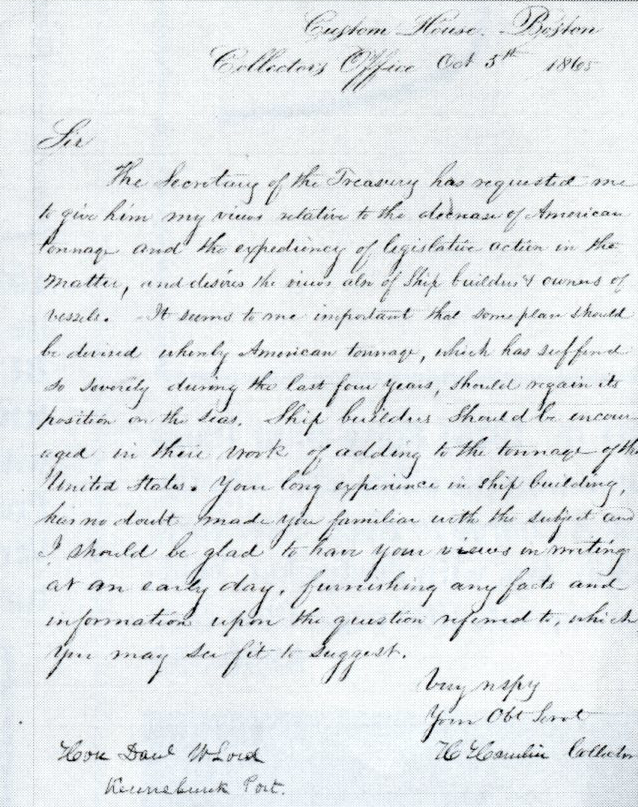 Custom House, Boston
Collector's Office Oct 5th 1865
Sir
The Secretary of the Treasury has requested me
to give him my views relative to the decrease of American
tonnage and the expediency of legislative action in the
matter, and desires the views also of Ship builders & owners of
vessels. It seems to me important that some plan should
be devised whereby American tonnage, which has suffered
so severely during the last four years, should regain its
position on the seas. Ship builders should be encour
aged in their work of adding to the tonnage of the
United States. Your long experience in ship building,
has no doubt made you familiar with the subject and
I should be glad to have your views in writing
at an early day, furnishing any facts and
information upon the question referred to, which
you may see fit to suggest.
Very respy
Your Obt Servt
H Hamlin Collector
Hon Danl W Lord
Kennebunk Port.